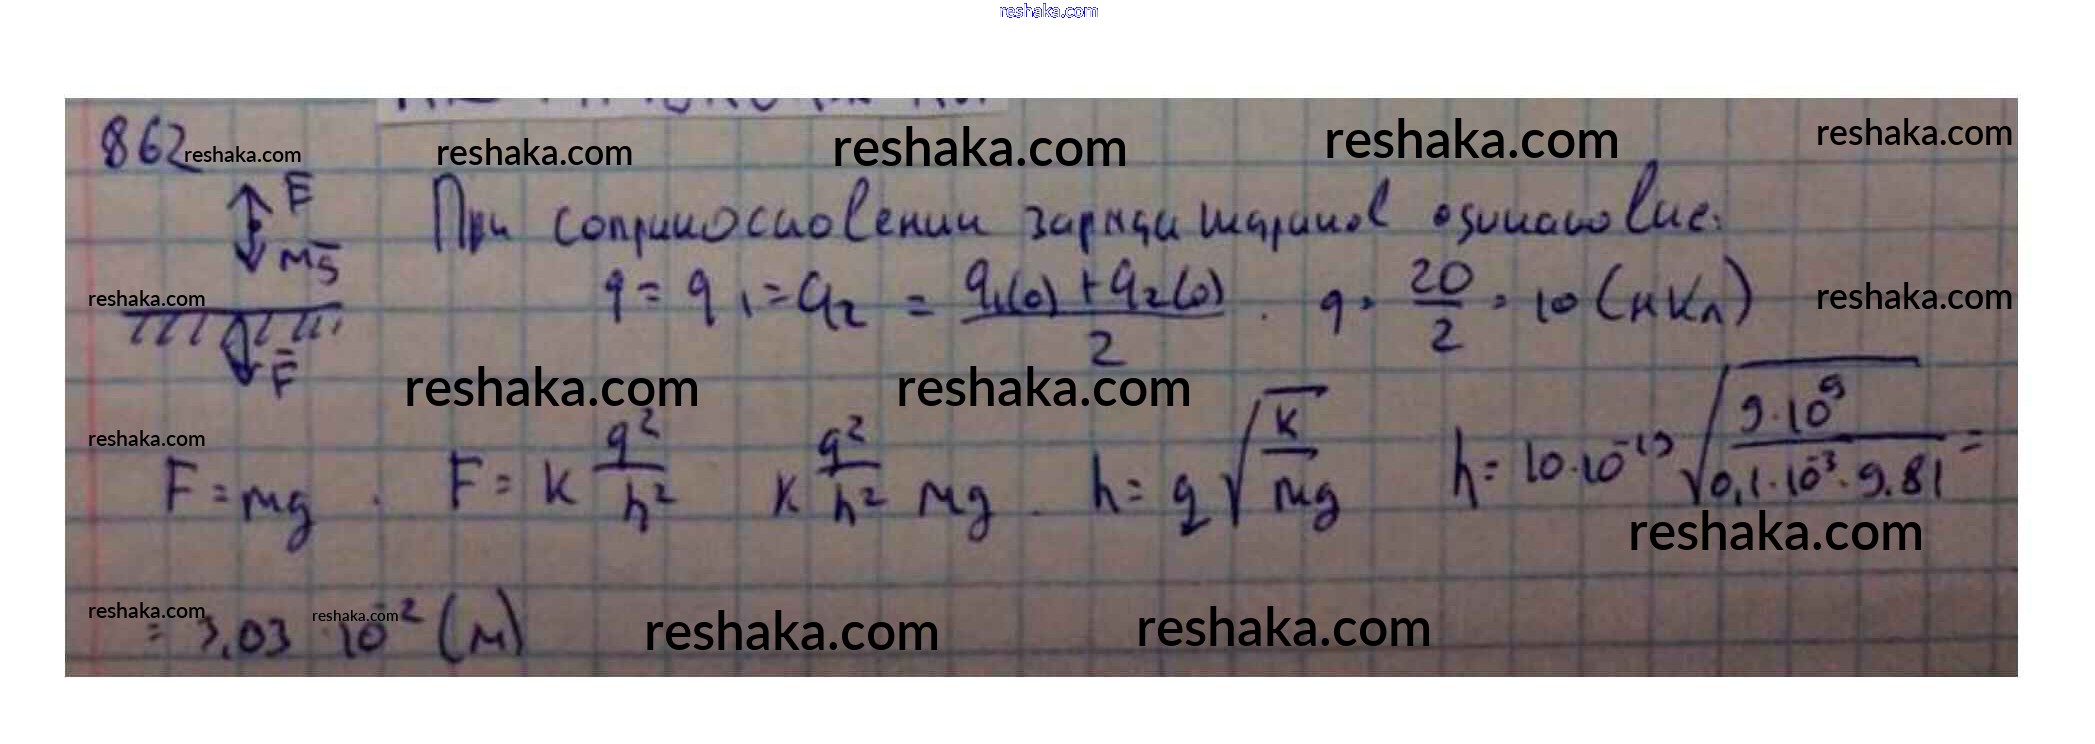 reshaka.com
862 reshaka.com reshaka.com reshaka.com reshaka.com reshaka.com
F̄
При соприкосновении заряды шариков одинаковые.
mḡ
q = q₁ = q₂ = (q₁(0) + q₂(0))/2 . q = 20/2 = 10 (нКл)
reshaka.com reshaka.com
F̄
reshaka.com reshaka.com
reshaka.com
F = mg . F = k q²/h² k q²/h² mg . h = q √(k/mg) h = 10·10⁻¹⁹ √(9·10⁹/(0,1·10⁻³·9.81)) =
reshaka.com
reshaka.com reshaka.com reshaka.com reshaka.com
= 3,03 · 10⁻² (м)